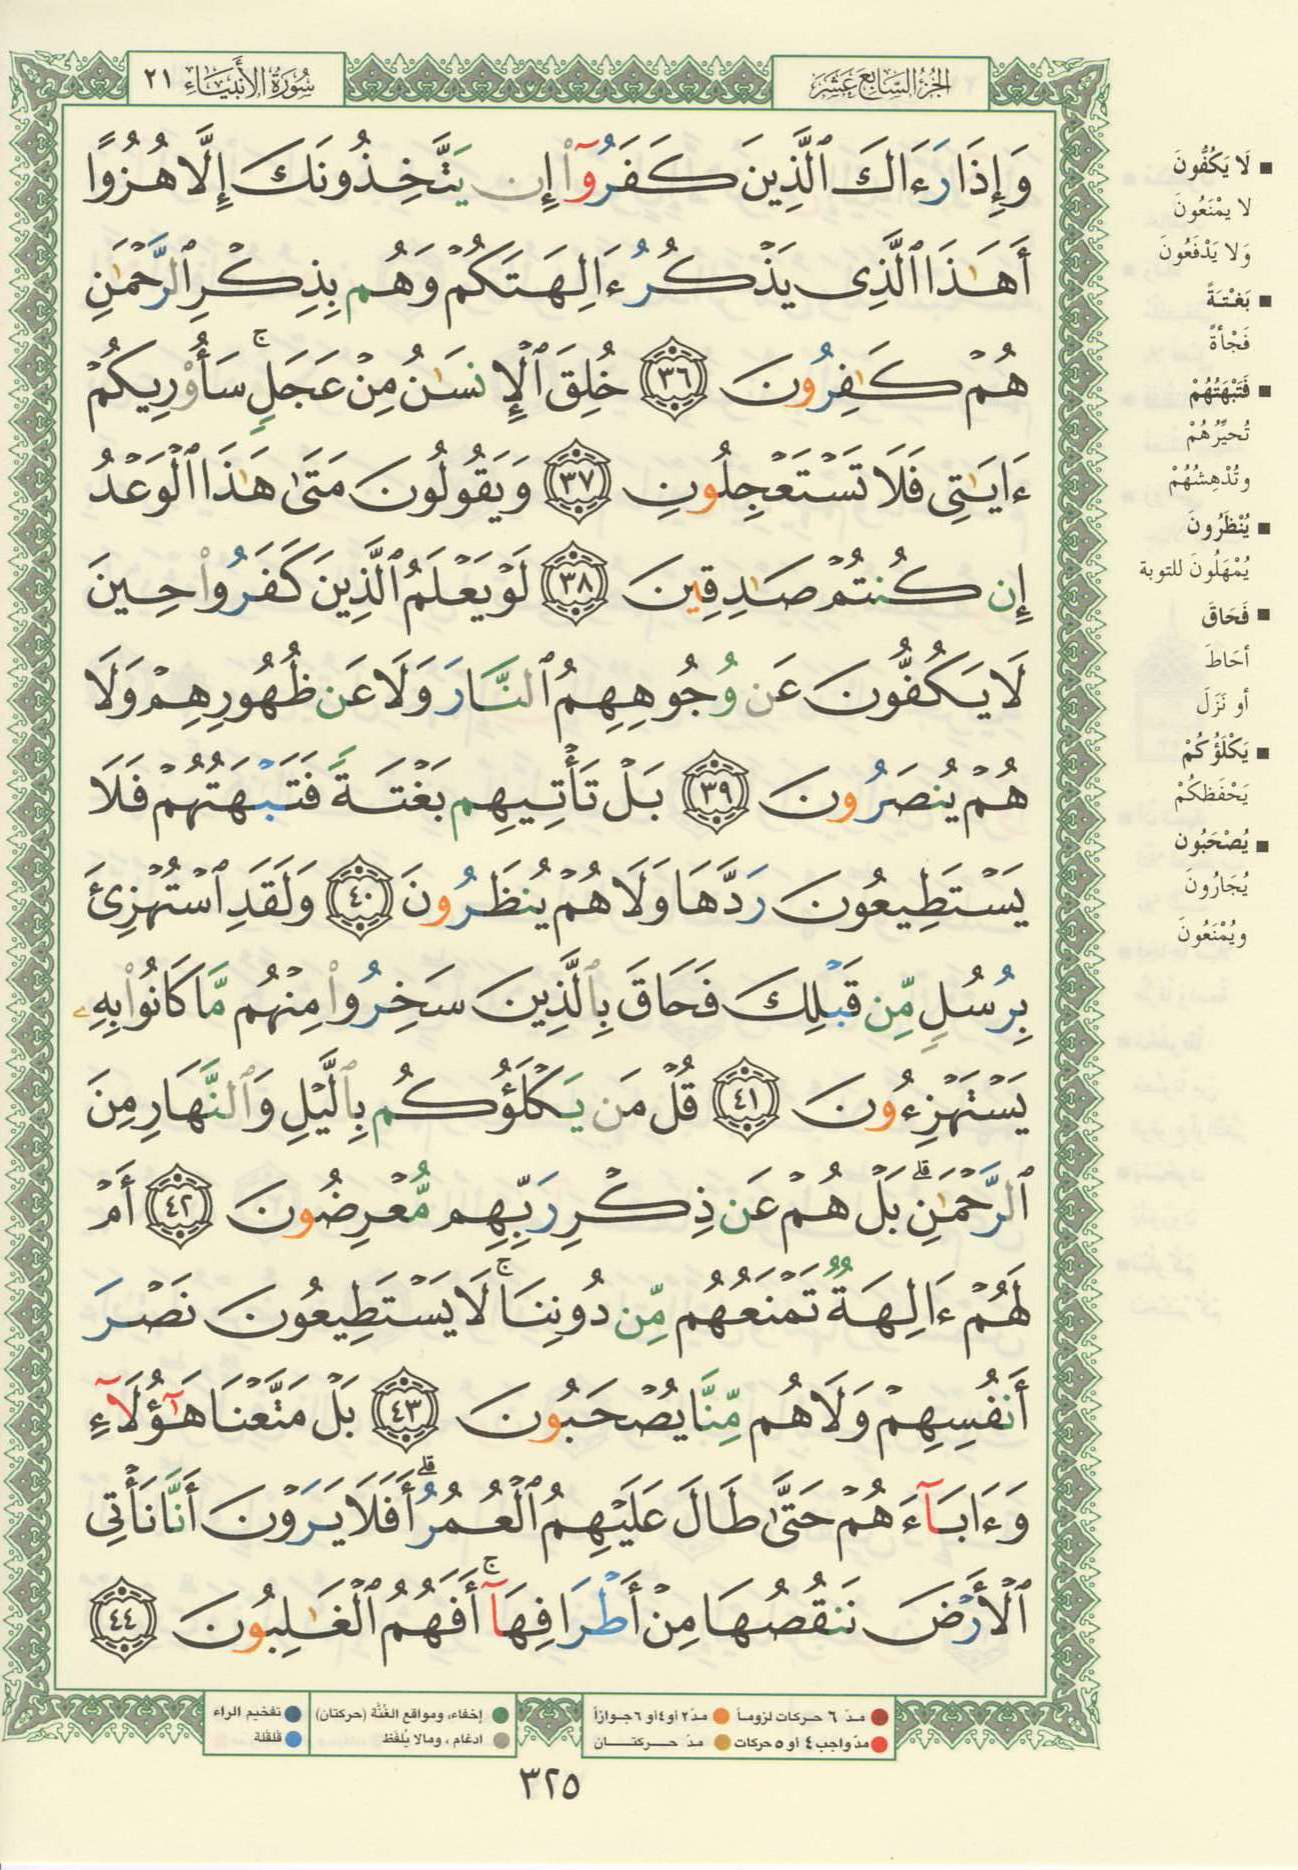 سُورَةُ الأَنبِيَاءِ ٢١
الجُزْءُ السَّابِعَ عَشَرَ
وَإِذَا رَءَاكَ ٱلَّذِينَ كَفَرُوٓا۟ إِن يَتَّخِذُونَكَ إِلَّا هُزُوًا
أَهَـٰذَا ٱلَّذِى يَذْكُرُ ءَالِهَتَكُمْ وَهُم بِذِكْرِ ٱلرَّحْمَـٰنِ
هُمْ كَـٰفِرُونَ ٣٦ خُلِقَ ٱلْإِنسَـٰنُ مِنْ عَجَلٍ ۚ سَأُو۟رِيكُمْ
ءَايَـٰتِى فَلَا تَسْتَعْجِلُونِ ٣٧ وَيَقُولُونَ مَتَىٰ هَـٰذَا ٱلْوَعْدُ
إِن كُنتُمْ صَـٰدِقِينَ ٣٨ لَوْ يَعْلَمُ ٱلَّذِينَ كَفَرُوا۟ حِينَ
لَا يَكُفُّونَ عَن وُجُوهِهِمُ ٱلنَّارَ وَلَا عَن ظُهُورِهِمْ وَلَا
هُمْ يُنصَرُونَ ٣٩ بَلْ تَأْتِيهِم بَغْتَةً فَتَبْهَتُهُمْ فَلَا
يَسْتَطِيعُونَ رَدَّهَا وَلَا هُمْ يُنظَرُونَ ٤٠ وَلَقَدِ ٱسْتُهْزِئَ
بِرُسُلٍ مِّن قَبْلِكَ فَحَاقَ بِٱلَّذِينَ سَخِرُوا۟ مِنْهُم مَّا كَانُوا۟ بِهِۦ
يَسْتَهْزِءُونَ ٤١ قُلْ مَن يَكْلَؤُكُم بِٱلَّيْلِ وَٱلنَّهَارِ مِنَ
ٱلرَّحْمَـٰنِ ۗ بَلْ هُمْ عَن ذِكْرِ رَبِّهِم مُّعْرِضُونَ ٤٢ أَمْ
لَهُمْ ءَالِهَةٌ تَمْنَعُهُم مِّن دُونِنَا ۚ لَا يَسْتَطِيعُونَ نَصْرَ
أَنفُسِهِمْ وَلَا هُم مِّنَّا يُصْحَبُونَ ٤٣ بَلْ مَتَّعْنَا هَـٰٓؤُلَآءِ
وَءَابَآءَهُمْ حَتَّىٰ طَالَ عَلَيْهِمُ ٱلْعُمُرُ ۗ أَفَلَا يَرَوْنَ أَنَّا نَأْتِى
ٱلْأَرْضَ نَنقُصُهَا مِنْ أَطْرَافِهَآ ۚ أَفَهُمُ ٱلْغَـٰلِبُونَ ٤٤
لَا يَكُفُّونَ
لا يمْنَعُونَ
وَلا يَدْفَعُونَ
بَغْتَةً
فَجْأةً
فَتَبْهَتُهُمْ
تُحيِّرُهُمْ
وتُدْهِشُهُمْ
يُنْظَرُونَ
يُمْهَلُونَ للتوبة
فَحَاقَ
أحَاطَ
أو نَزَلَ
يَكْلَؤُكُمْ
يَحْفَظُكُمْ
يُصْحَبُون
يُجَارُونَ
ويُمْنَعُونَ
مدّ ٦ حركات لزوماً
مدّ ٢ أو ٤ أو ٦ جوازاً
إخفاء، ومواقع الغُنَّة (حركتان)
تفخيم الراء
مدّ واجب ٤ أو ٥ حركات
مدّ حركتان
ادغام ، ومالا يُلفَظ
قلقلة
٣٢٥